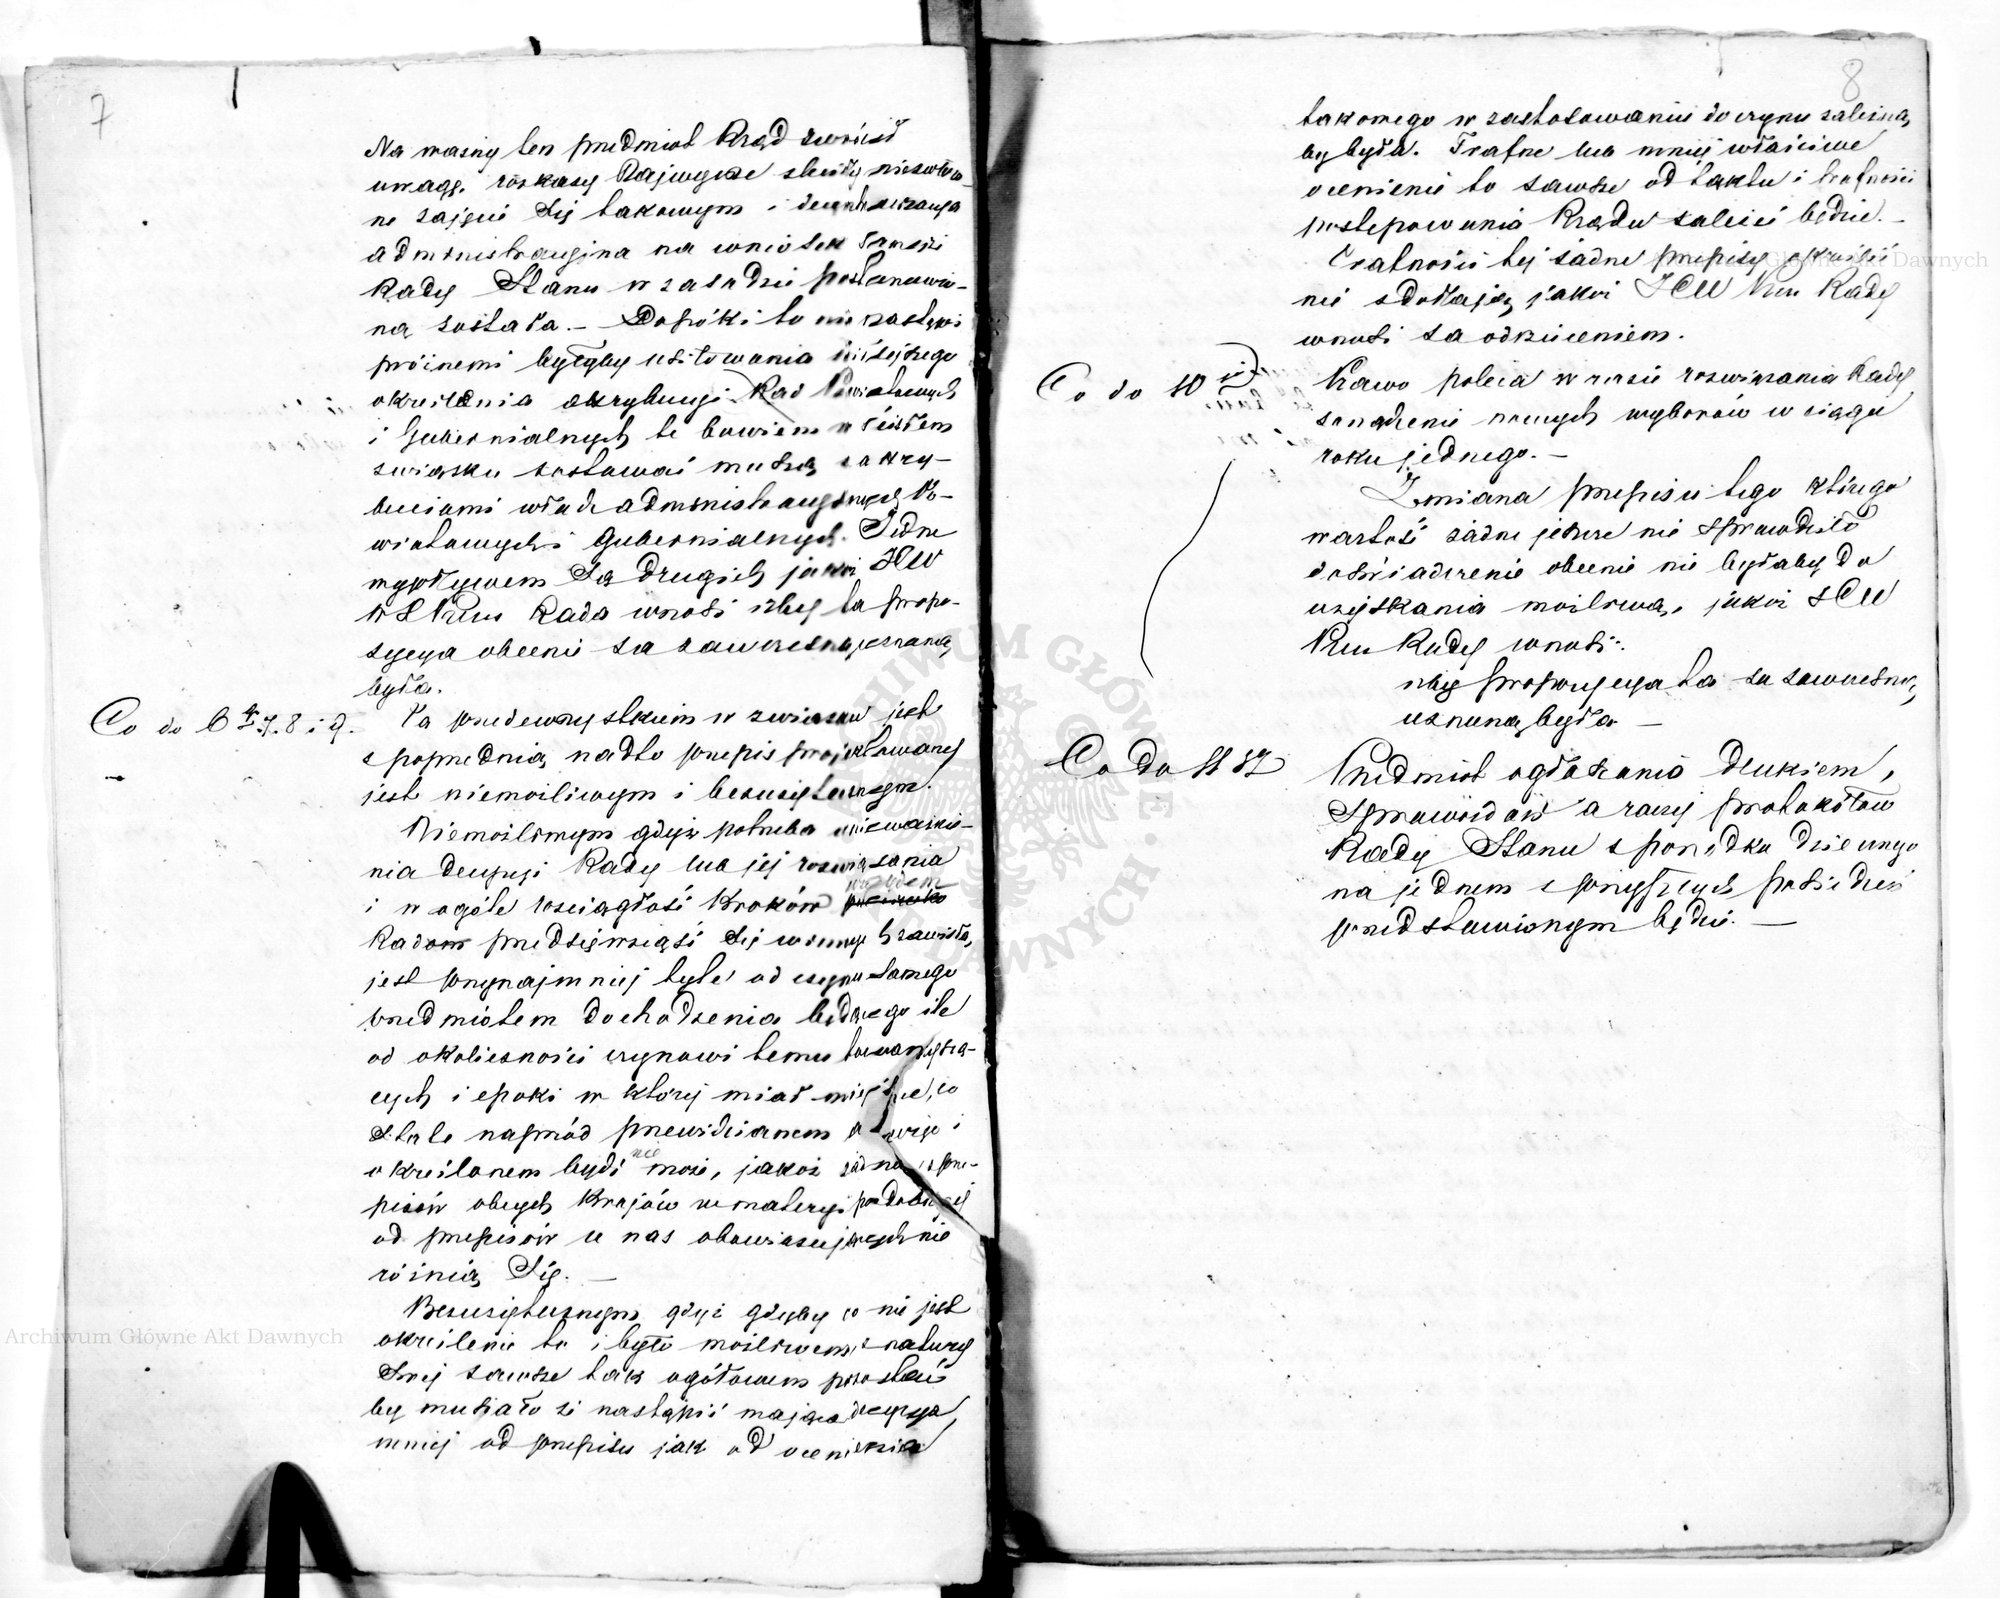 7
Na ważny ten przedmiot Rząd zwrócił
uwagę, rozkazy Najwyższe
ne zajęcie się takowym i decentralizacya
administracyjna na wniosek
Rady Stanu w zasadzie postanowio-
ną została. — Dopóki to nie nastąpi
próżnemi byłyby usiłowania ściślejszego
określenia atrybucyi Rad Powiatowych
i Gubernialnych te bowiem w ścisłem
związku zostawać muszą z atry-
bucyami władz administracyjnych Po-
wiatowych i Gubernialnych. Jedne
wypływem są drugich jakoż JCW
Rada wnosi iżby ta propo-
zycya obecnie za zawczesną uznaną
była.
Co do 6ej 7. 8 i 9.
Ta przedewszystkiem w związku jest
z poprzednią, nadto przepis projektowany
jest niemożliwym i bezużytecznym.
Niemożliwym gdyż potrzeba unieważnie-
nia decyzyi Rady lub jej rozwiązania
względem
i w ogóle rozciągłość kroków
Radom przedsięwziąść się winnych zawisłą
jest przynajmniej tyle od czynu samego
przedmiotem dochodzenia będącego ile
od okoliczności czynowi temu towarzyszą-
cych i epoki w której miał miejsce, co
stale naprzód przewidzianem a
określonem bydź nie może, jakoż żadne z prze-
pisów obcych krajów w materyi podobnej
od przepisów u nas obowiązujących nie
różnią się. —
Bezużytecznym gdyż gdyby co nie jest
określenie to i było możliwem z natury
swej zawsze tak ogółowem pozostać
by musiało że nastąpić mająca decyzya
mniej od przepisu jak od ocenienia
8
takowego w zastosowaniu do czynu zależną
by była. Trafne lub mniej właściwe
ocenienie to zawsze od taktu i trafności
postępowania Rządu zależeć będzie. —
Trafności tej żadne przepisy określić
nie zdołają, jakoż JCW Rady
wnosi za odrzuceniem.
Co do 10ej
Prawo poleca w razie rozwiązania Rady
zarządzenie nowych wyborów w ciągu
roku jednego. —
Zmiana przepisu tego którego
wartość żadne jeszcze nie sprawdziło
doświadczenie obecnie nie byłaby do
uzyskania możliwą, jakoż JCW
Rady wnosi:
iżby propozycya ta za zawczesną
uznaną była —
Co do
Przedmiot ogłaszania drukiem,
Sprawozdań a raczej protokółów
Rady Stanu z porządku dziennego
na jednem z przyszłych posiedzeń
przedstawionym będzie. —
Archiwum Główne Akt Dawnych